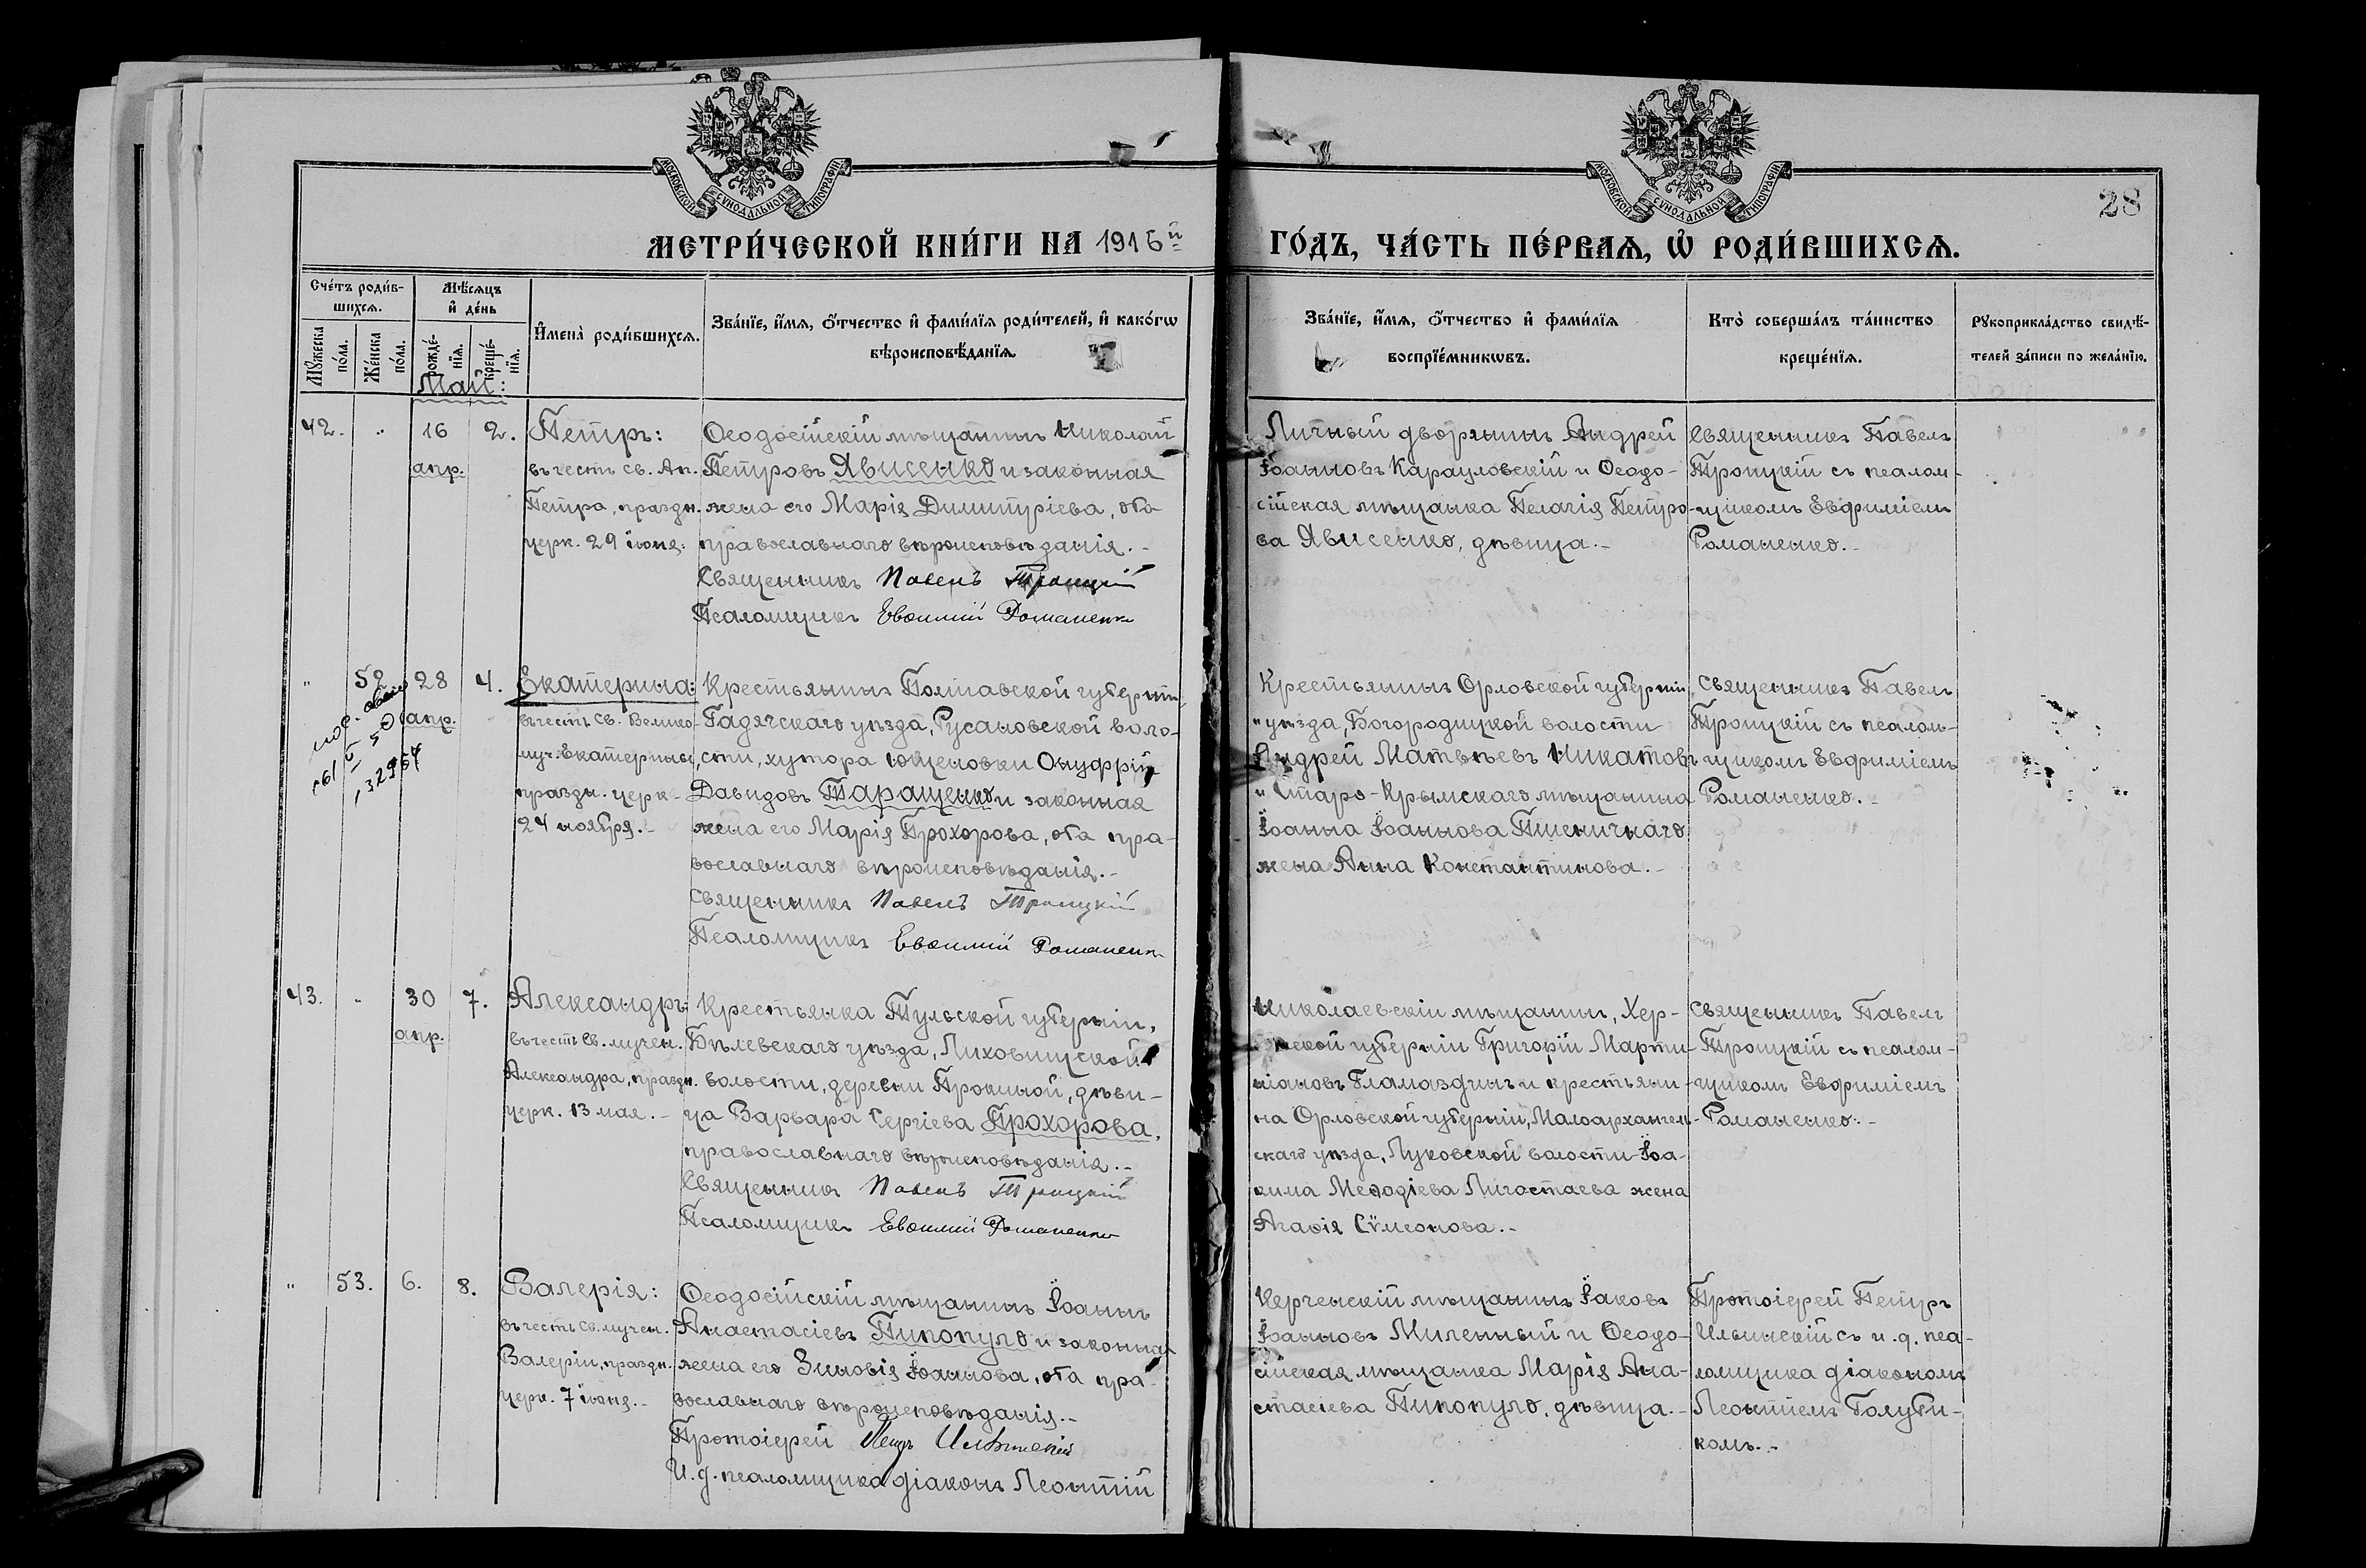 МОСКОВСКОЙ СѴНОДАЛЬНОЙ ТИПОГРАФІИ
МОСКОВСКОЙ СѴНОДАЛЬНОЙ ТИПОГРАФІИ
28
МЕТРИ́ЧЕСКОЙ КНИ́ГИ НА 1916й ГО́ДЪ, ЧА́СТЬ ПЕ́РВАѦ, Ѽ РОДИ́ВШИХСѦ.
Сче́тъ роди́в-
шихсѧ.
Мѣ́сѧцъ
и҆ де́нь
Мꙋ́жеска по́ла.
Же́нска по́ла.
рожде́-
нїѧ.
креще́-
нїѧ.
И҆мена̀ роди́вшихсѧ.
Зва́нїе, и҆́мѧ, ѻ҆́тчество и҆ фами́лїѧ роди́телей, и҆ како́гѡ
вѣроисповѣ́данїѧ.
Зва́нїе, и҆́мѧ, ѻ҆́тчество и҆ фами́лїѧ
воспрїе́мникѡвъ.
Кто̀ соверша́лъ та́инство
креще́нїѧ.
Рꙋкоприкла́дство свидѣ́-
телей за́писи по жела́нїю.
Май:
42. " 16 2. Петръ:
апр.
въ честь св. Ап.
Петра, праздн.
церк. 29 іюня:
Ѳеодосійскій мѣщанинъ Николай
Петровъ Явисенко и законная
жена его Марія Димитріева, оба
православнаго вѣроисповѣданія.-
Священникъ Павелъ Троицкій
Псаломщикъ Евѳимій Романенко
Личный дворянинъ Андрей
Іоанновъ Карауловскій и Ѳеодо-
сійская мѣщанка Пелагія Петро-
ва Явисенко, дѣвица.-
Священникъ Павелъ
Троицкій съ псалом-
щикомъ Евфиміемъ
Романенко.-
" 52. 28 4. Екатерина:
апр.
въ честь св. Велико-
муч. Екатерины,
праздн. церк-
24 ноября.-
Крестьянинъ Полтавской губерніи,
Гадячскаго уѣзда, Русановской воло-
сти, хутора Ющеновки Онуфрій
Давидовъ Таращенко и законная
жена его Марія Прохорова, оба пра-
вославнаго вѣроисповѣданія.-
Священникъ Павелъ Троицкій
Псаломщикъ Евѳимій Романенко
Крестьянинъ Орловской губерніи
" уѣзда, Богородицкой волости
Андрей Матвѣевъ Никатовъ
и Старо-Крымскаго мѣщанина
Іоанна Іоаннова Пшеничнаго
жена Анна Константинова.-
Священникъ Павелъ
Троицкій съ псалом-
щикомъ Евфиміемъ
Романенко.-
43. " 30 7. Александръ:
апр.
въ честь св. мучен.
Александра, праздн.
церк. 13 мая.-
Крестьянка Тульской губерніи,
Бѣлевскаго уѣзда, Лиховищской
волости, деревни Прониной, дѣви-
ца Варвара Сергіева Прохорова,
православнаго вѣроисповѣданія.-
Священникъ Павелъ Троицкій
Псаломщикъ Евѳимій Романенко
Николаевскій мѣщанинъ, Хер-
сонской губерніи Григорій Марти-
ніановъ Гламаздинъ и крестьяни-
на Орловской губерніи, Малоархангель-
скаго уѣзда, Луковской волости Іоа-
кима Меѳодіева Лигостаева жена
Агаѳія Сѵмеонова.-
Священникъ Павелъ
Троицкій съ псалом-
щикомъ Евфиміемъ
Романенко.-
" 53. 6. 8. Валерія:
въ честь св. мучен.
Валеріи, праздн.
церк. 7 іюня.-
Ѳеодосійскій мѣщанинъ Іоаннъ
Анастасіевъ Пипопуло и законная
жена его Зиновія Іоаннова, оба пра-
вославнаго вѣроисповѣданія.-
Протоіерей Петръ Ильинскій
И. д. псаломщика діаконъ Леонтій
Керченскій мѣщанинъ Іаковъ
Іоанновъ Миленный и Ѳеодо-
сійская мѣщанка Марія Ана-
стасіева Пипопуло, дѣвица.-
Протоіерей Петръ
Ильинскій съ и. д. пса-
ломщика діакономъ
Леонтіемъ Голуби-
комъ.-